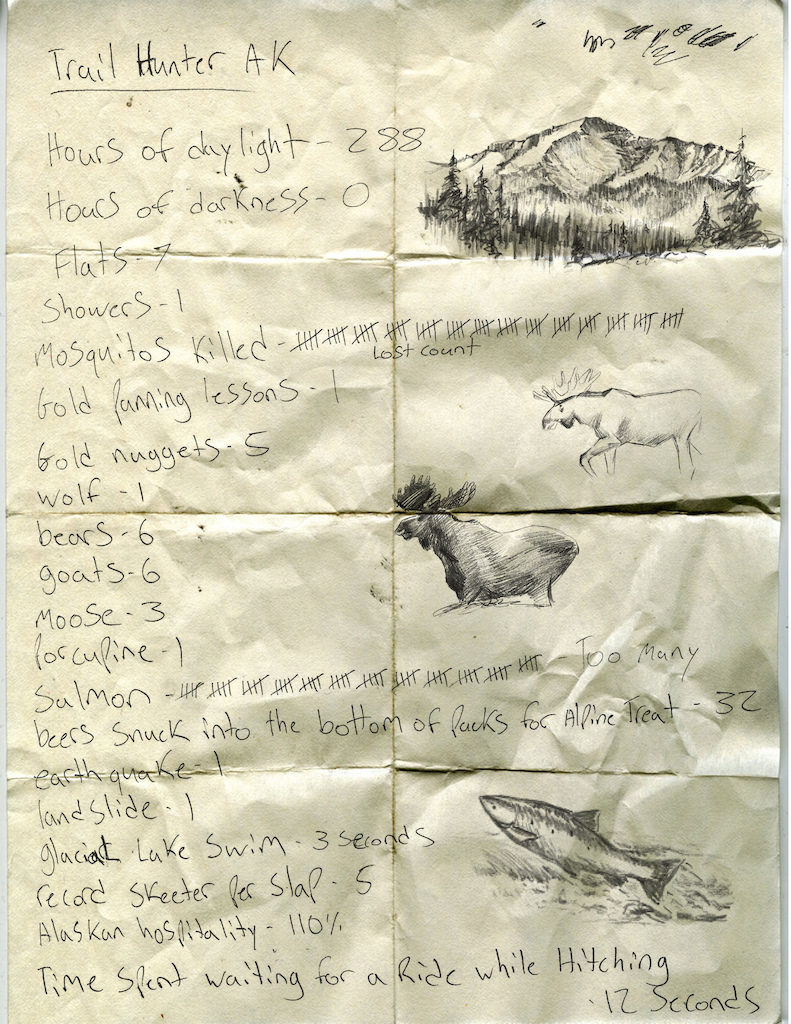 Trail Hunter AK
Hours of daylight - 288
Hours of darkness - 0
Flats - 7
Showers - 1
Mosquitos killed - 
Lost count
Gold panning lessons - 1
Gold nuggets - 5
wolf - 1
bears - 6
goats - 6
Moose - 3
Porcupine - 1
Salmon - Too Many
beers snuck into the bottom of Packs for Alpine Treat - 32
earthquake - 1
landslide - 1
glacial Lake Swim - 3 seconds
record Skeeter per Slap - 5
Alaskan hospitality - 110%
Time Spent waiting for a Ride while Hitching
- 12 Seconds